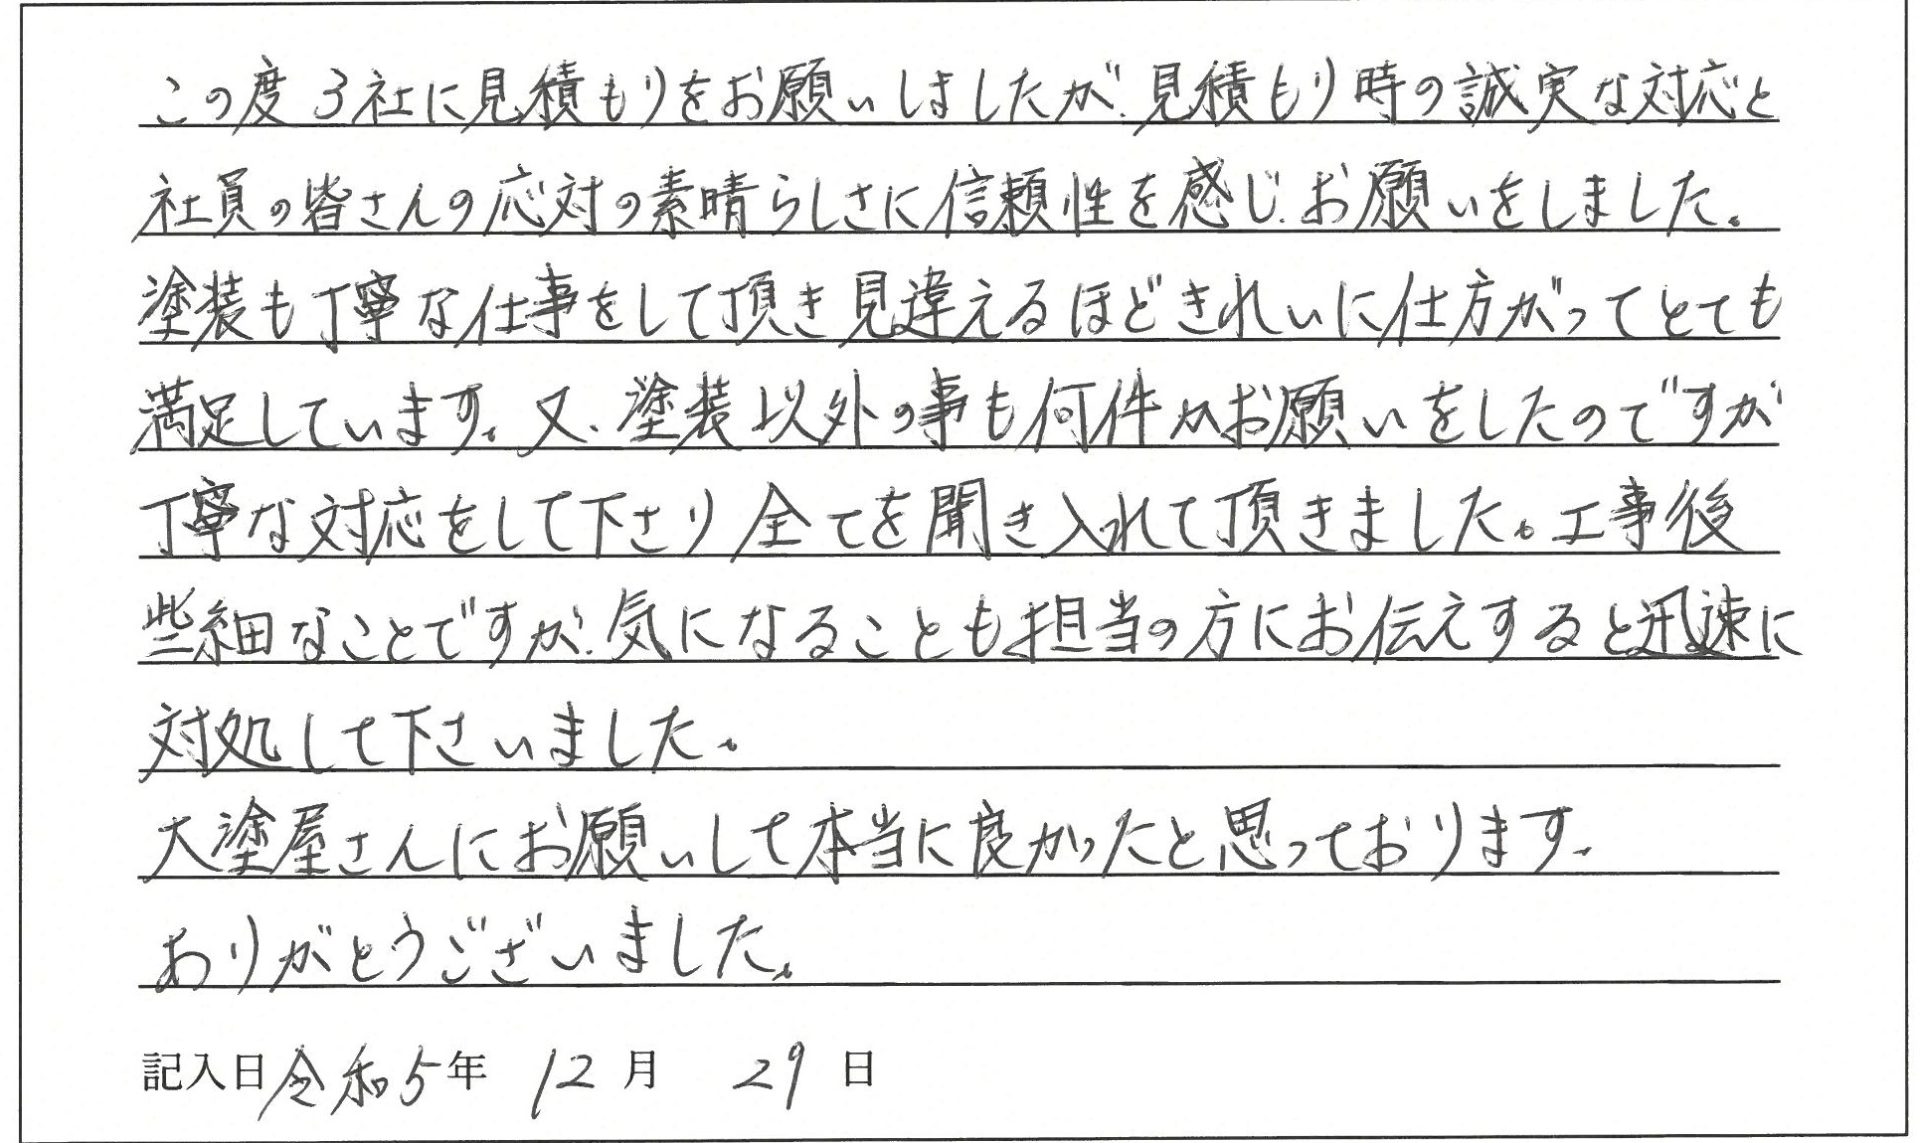 この度3社に見積もりをお願いしましたが、見積もり時の誠実な対応と
社員の皆さんの応対の素晴らしさに信頼性を感じ、お願いをしました。
塗装も丁寧な仕事をして頂き見違えるほどきれいに仕方がってとても
満足しています。又、塗装以外の事も何件かお願いをしたのですが
丁寧な対応をして下さり全てを聞き入れて頂きました。工事後
些細なことですが、気になることも担当の方にお伝えすると迅速に
対処して下さいました。
大塗屋さんにお願いして本当に良かったと思っております。
ありがとうございました。
記入日 令和5年 12月 29日